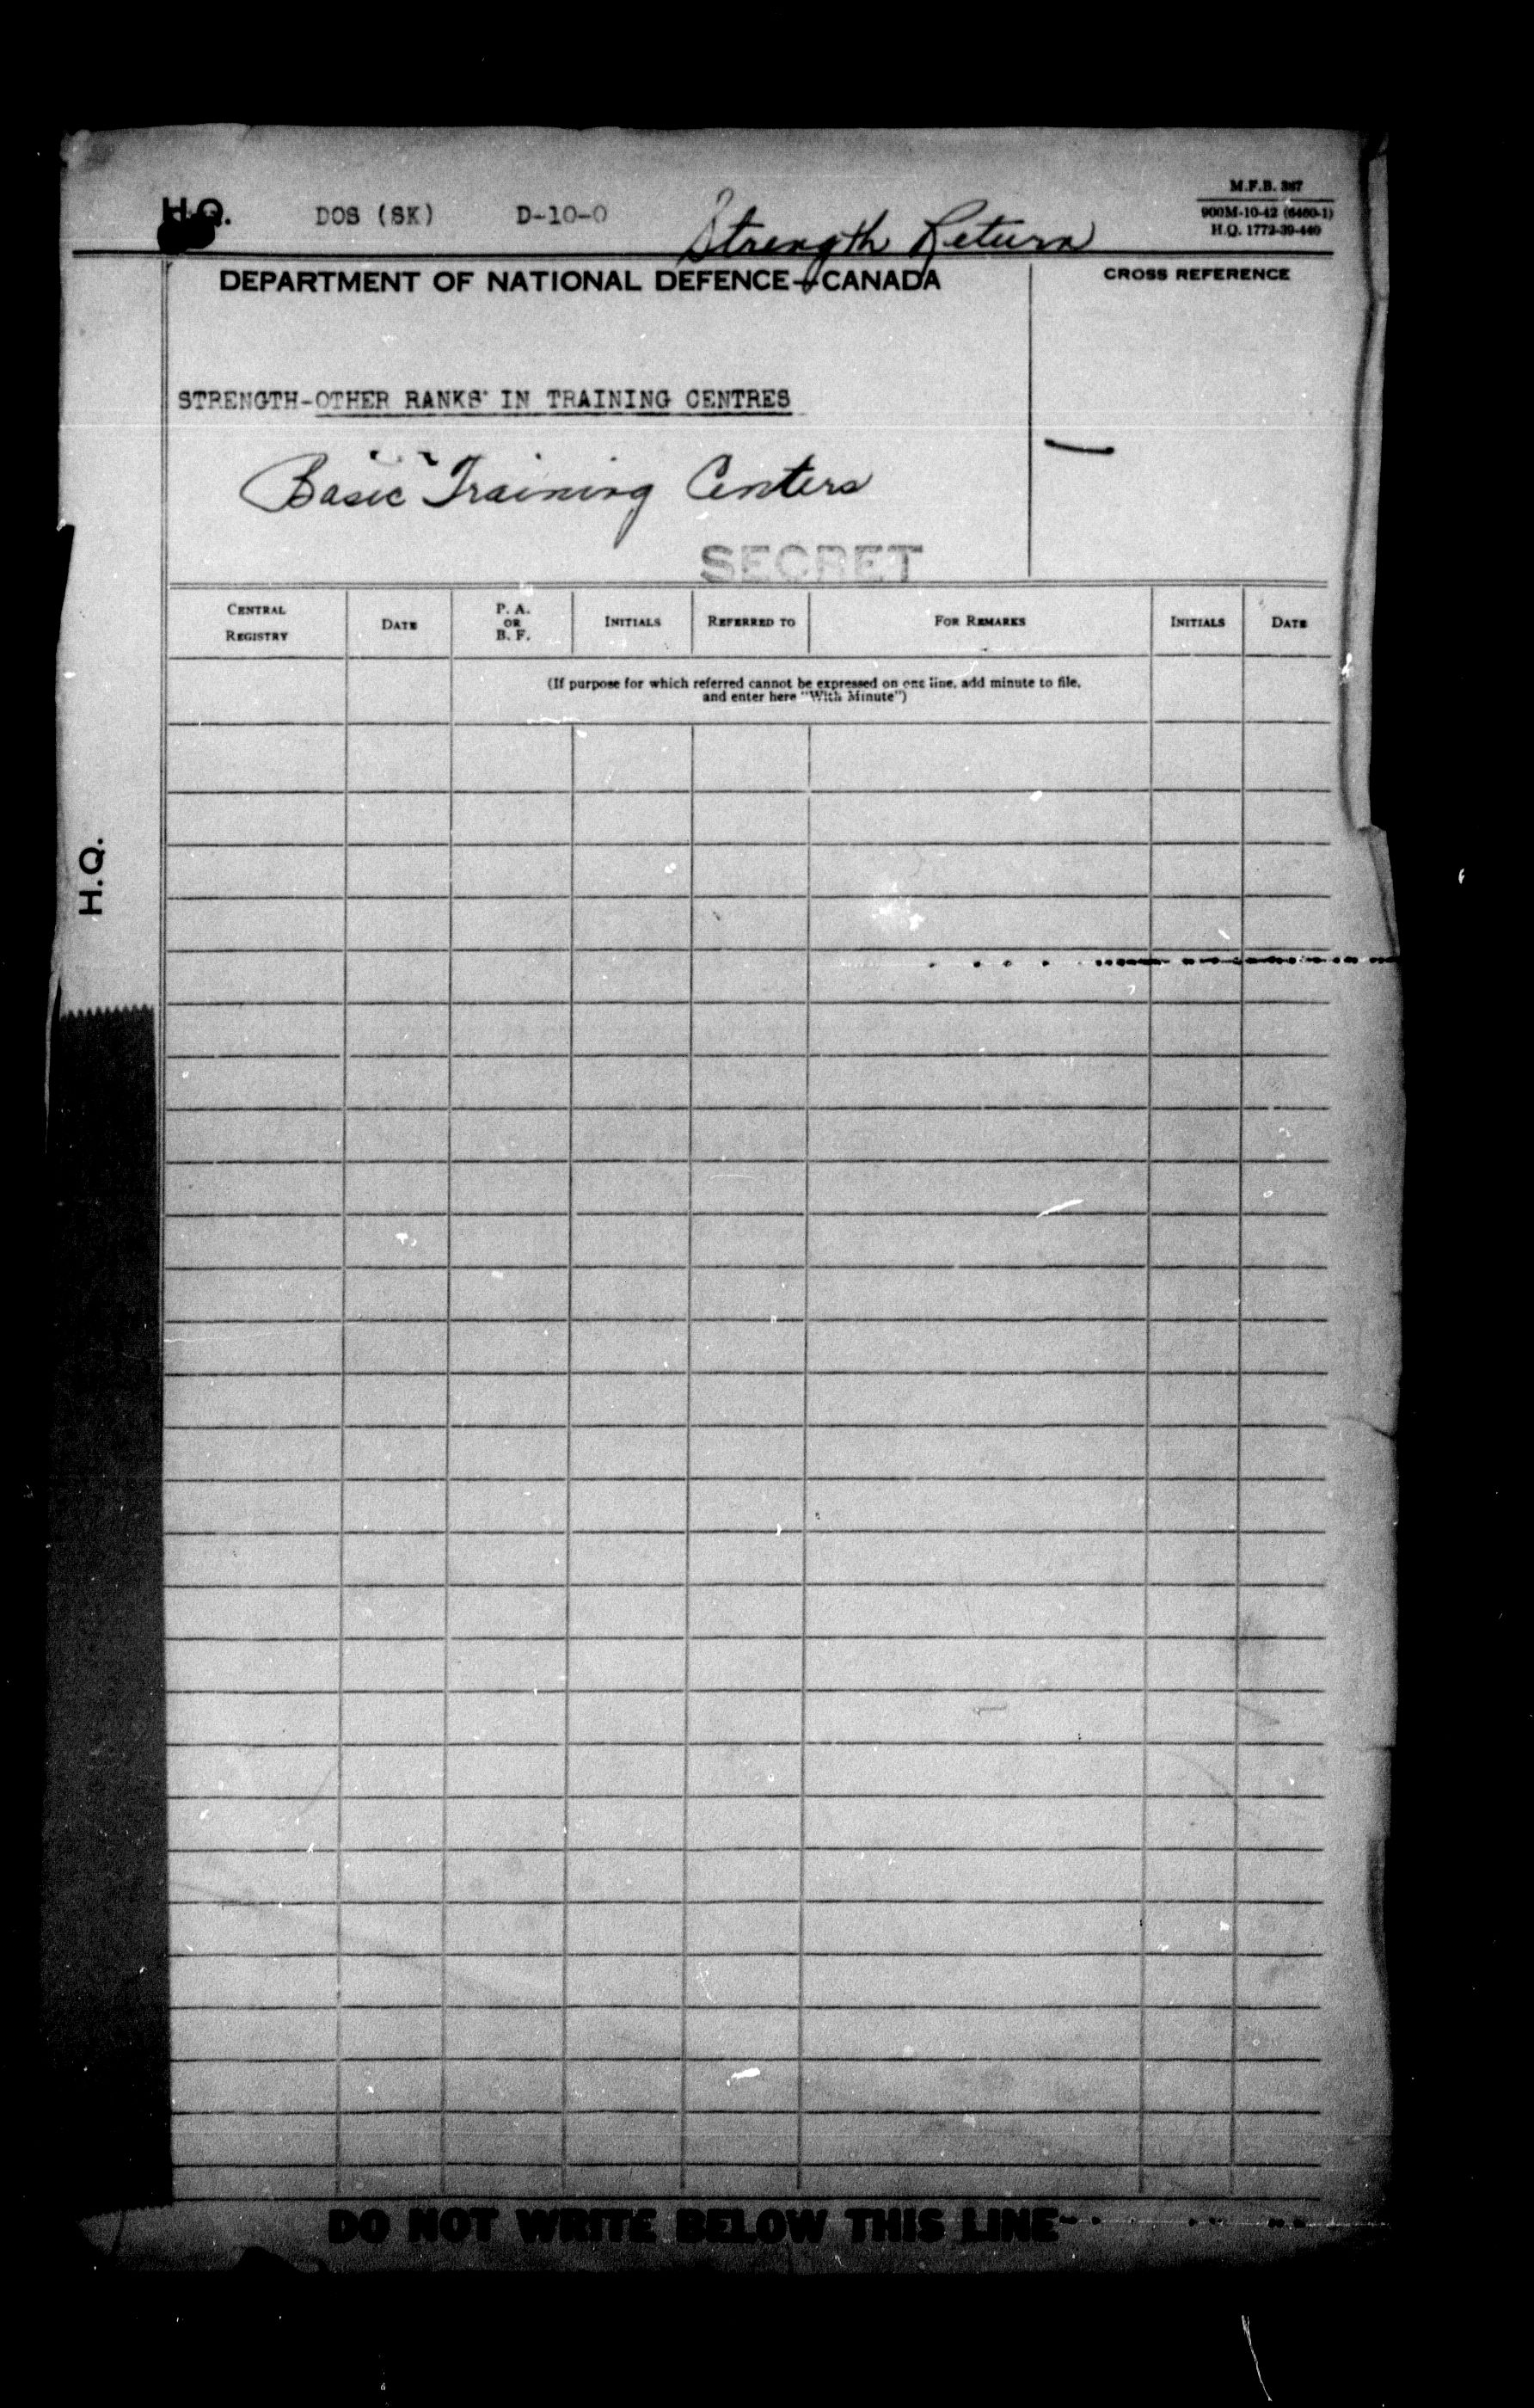 M.F.B. 387
900M-10-42 (6460-1)
H.Q. 1772-39-440
H.Q. DOS (SK) D-10-0 Strength Return
DEPARTMENT OF NATIONAL DEFENCE-CANADA
CROSS REFERENCE
STRENGTH-OTHER RANKS IN TRAINING CENTRES
Basic Training Centers
SECRET
CENTRAL REGISTRY DATE P. A. OR B. F. INITIALS REFERRED TO FOR REMARKS INITIALS DATE
(If purpose for which referred cannot be expressed on one line, add minute to file,
and enter here "With Minute")
H.Q.
DO NOT WRITE BELOW THIS LINE